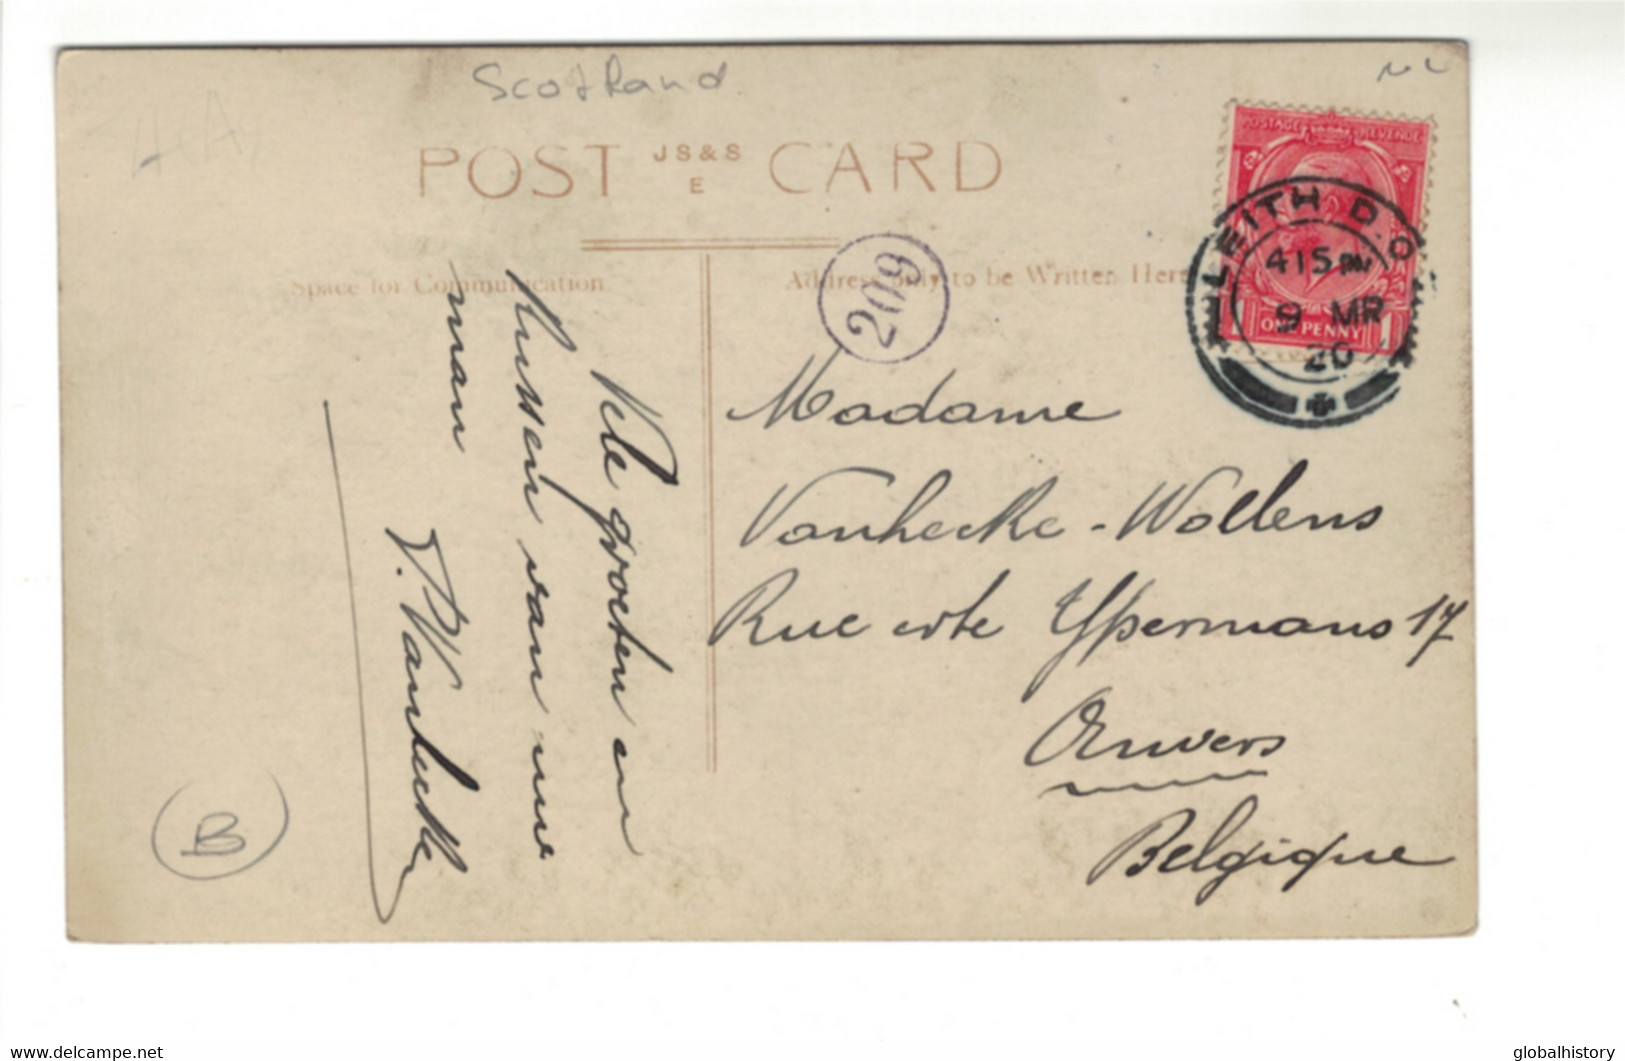 Scotland
POST JS&S CARD
E
Space for Communication
Address only to be Written Here
209
POSTAGE REVENUE
ONE PENNY
LEITH D.O
415 PM
9 MR
20
Vele groeten en
Kussen van uwe
man
Vanhecke
Madame
Vanhecke-Wollens
Rue Ypermans 17
Anvers
Belgique
B
delcampe.net
globalhistory